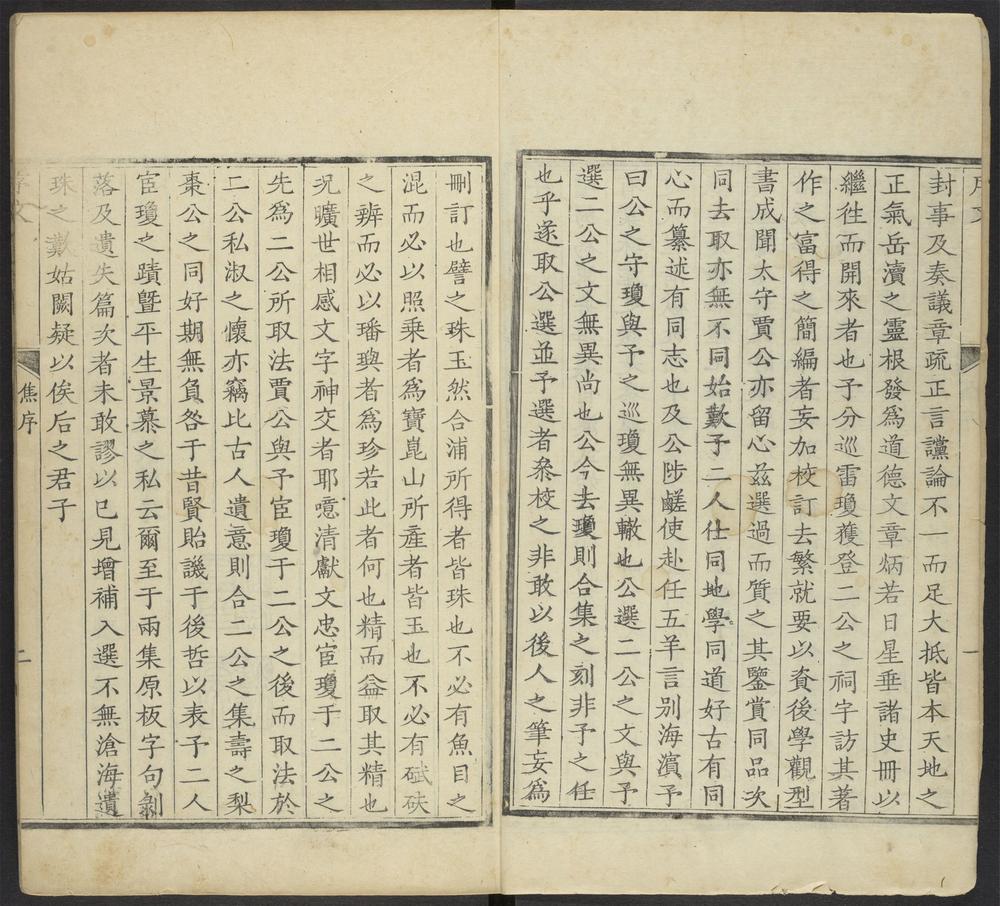 序文
封事及奏議章疏正言讜論不一而足大抵皆本天地之
正氣岳瀆之靈根發爲道德文章炳若日星垂諸史冊以
繼徃而開來者也予分巡雷瓊獲登二公之祠宇訪其著
作之富得之簡編者妄加校訂去繁就要以資後學觀型
書成聞太守賈公亦留心茲選過而質之其鑒賞同品次
同去取亦無不同始歎予二人仕同地學同道好古有同
心而纂述有同志也及公陟鹺使赴任五羊言別海濵予
曰公之守瓊與予之巡瓊無異轍也公選二公之文與予
選二公之文無異尚也公今去瓊則合集之刻非予之任
也乎遂取公選並予選者叅校之非敢以後人之筆妄爲
一
刪訂也譬之珠玉然合浦所得者皆珠也不必有魚目之
混而必以照乗者爲寶崑山所產者皆玉也不必有碔砆
之辨而必以璠璵者爲珍若此者何也精而益取其精也
况曠世相感文字神交者耶噫清獻文忠宦瓊于二公之
先爲二公所取法賈公與予宦瓊于二公之後而取法於
二公私淑之懷亦竊比古人遺意則合二公之集壽之梨
棗公之同好期無負咎于昔賢貽譏于後哲以表予二人
宦瓊之蹟曁平生景慕之私云爾至于兩集原板字句剝
落及遺失篇次者未敢謬以已見增補入選不無滄海遺
珠之歎姑闕疑以俟后之君子
序文
焦序
二